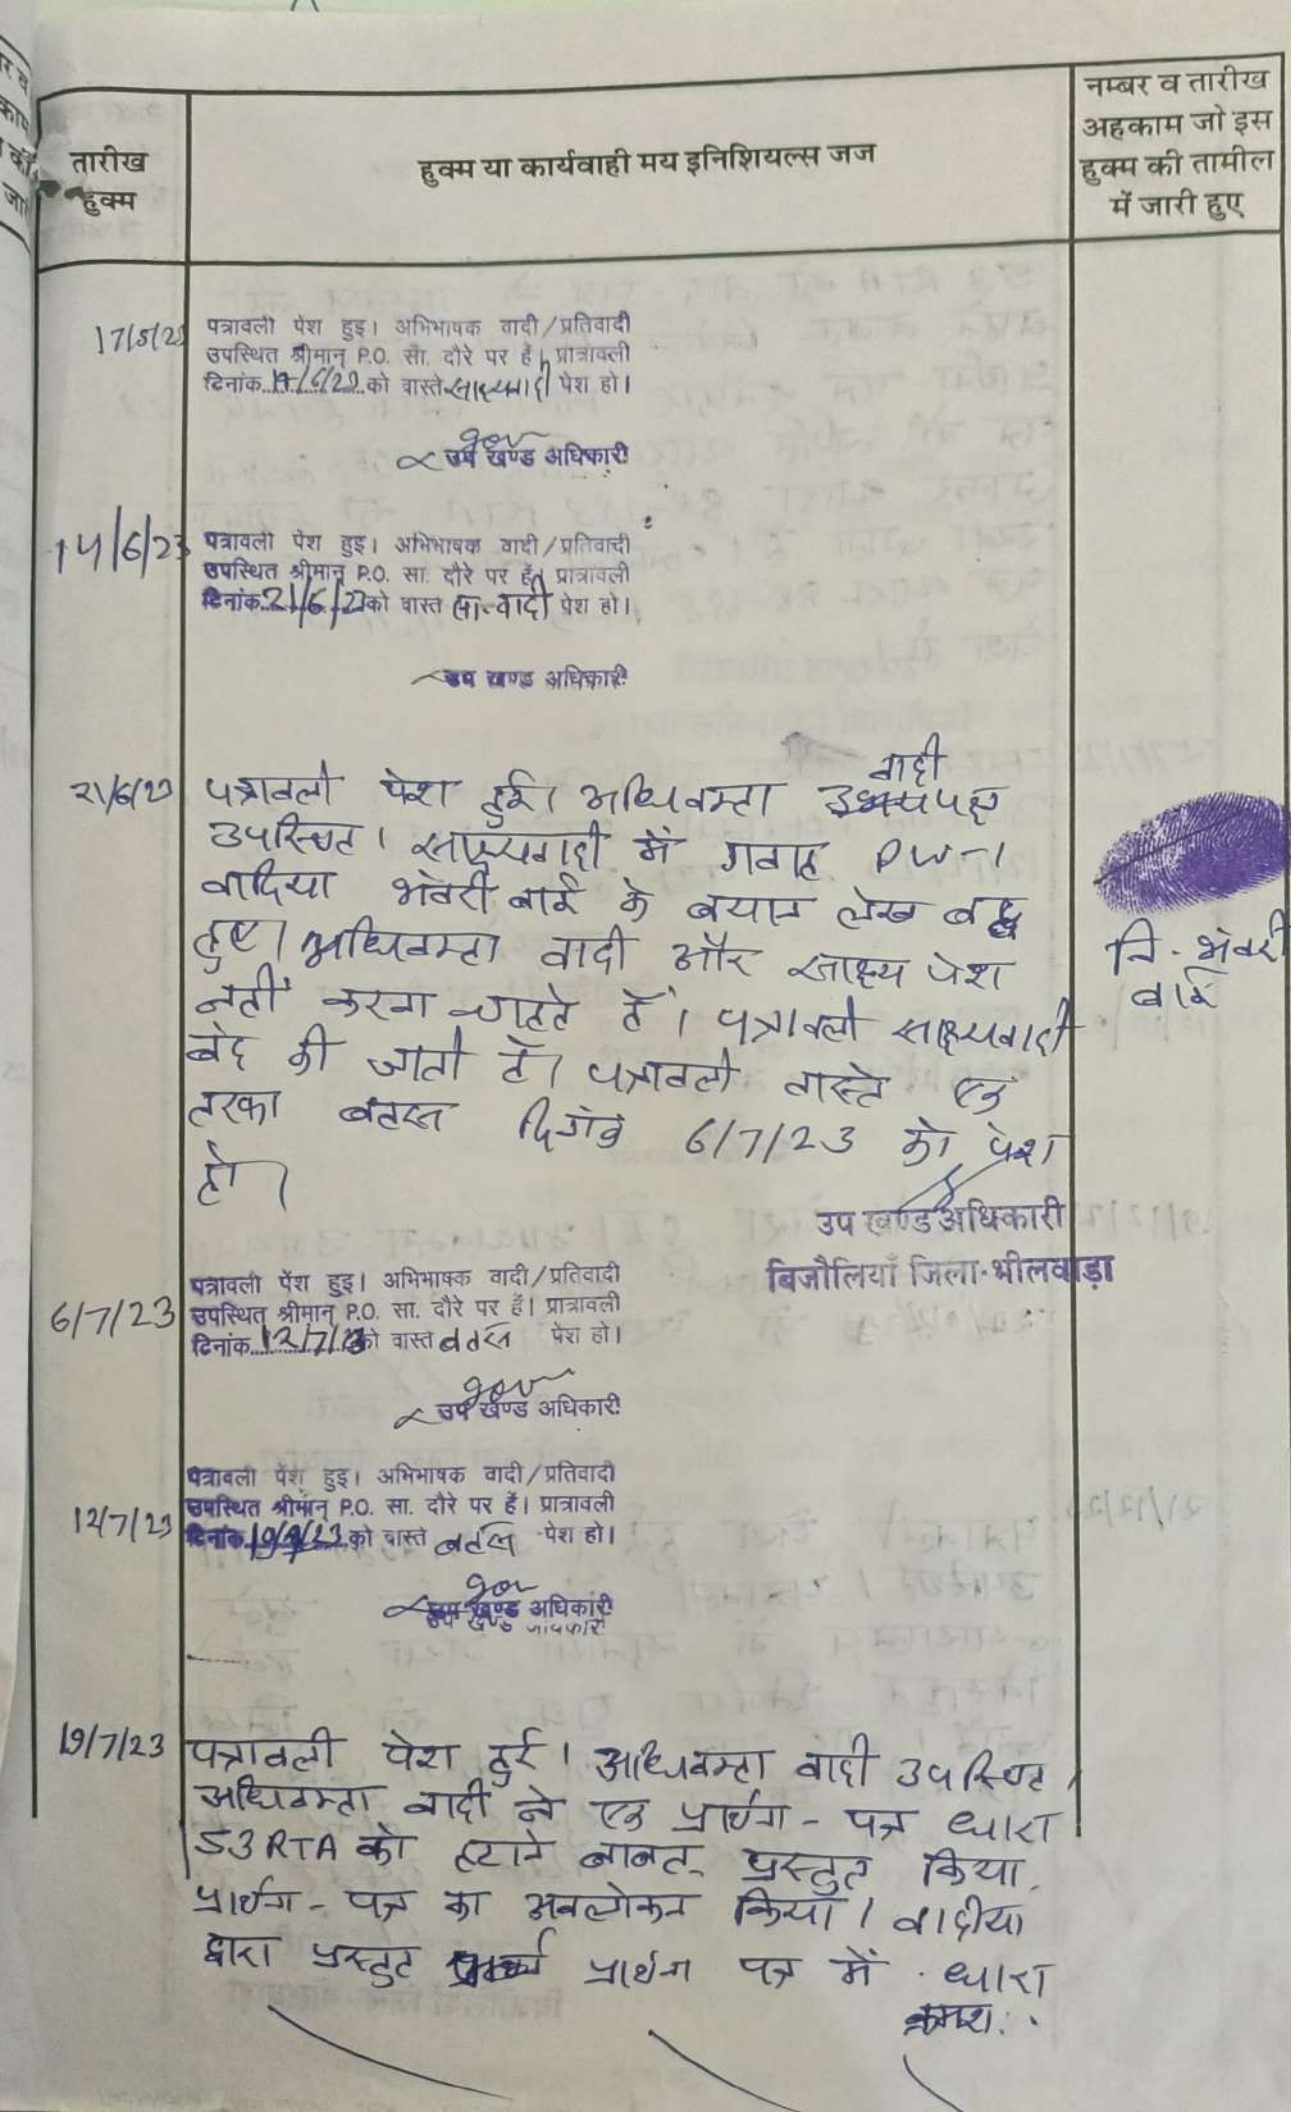 तारीख
हुक्म
हुक्म या कार्यवाही मय इनिशियल्स जज
नम्बर व तारीख
अहकाम जो इस
हुक्म की तामील
में जारी हुए
17/5/23
पत्रावली पेश हुइ। अभिभाषक वादी/प्रतिवादी
उपस्थित श्रीमान् P.O. सा. दौरे पर हैं। प्रात्रावली
दिनांक 14/6/23 को वास्ते साक्ष्यवादी पेश हो।
उप खण्ड अधिकारी
14/6/23
पत्रावली पेश हुइ। अभिभाषक वादी/प्रतिवादी
उपस्थित श्रीमान् P.O. सा. दौरे पर हैं। प्रात्रावली
दिनांक 21/6/23 को वास्त सा-वादी पेश हो।
उप खण्ड अधिकारी
21/6/23
वादी
पत्रावली पेश हुई। अधिवक्ता उभयपक्ष
उपस्थित। साक्ष्यवादी में गवाह PW-1
वादिया भंवरी बाई के बयान लेख बद्ध
हुए। अधिवक्ता वादी और साक्ष्य पेश
नहीं करना चाहते हैं। पत्रावली साक्ष्यवादी
बंद की जाती है। पत्रावली वास्ते एक
तरफा बहस दिनांक 6/7/23 को पेश
हो।
नि. भंवरी
बाई
उप खण्ड अधिकारी
बिजौलियाँ जिला-भीलवाड़ा
6/7/23
पत्रावली पेश हुइ। अभिभाषक वादी/प्रतिवादी
उपस्थित श्रीमान् P.O. सा. दौरे पर हैं। प्रात्रावली
दिनांक 12/7/23 को वास्त बहस पेश हो।
उप खण्ड अधिकारी
12/7/23
पत्रावली पेश हुइ। अभिभाषक वादी/प्रतिवादी
उपस्थित श्रीमान् P.O. सा. दौरे पर हैं। प्रात्रावली
दिनांक 19/7/23 को वास्त बहस पेश हो।
उप खण्ड अधिकारी
19/7/23
पत्रावली पेश हुई। अधिवक्ता वादी उपस्थित।
अधिवक्ता वादी ने एक प्रार्थना-पत्र धारा
53 RTA को हटाने बाबत् प्रस्तुत किया.
प्रार्थना-पत्र का अवलोकन किया। वादीया
द्वारा प्रस्तुत प्रार्थना पत्र में धारा
क्रमश..